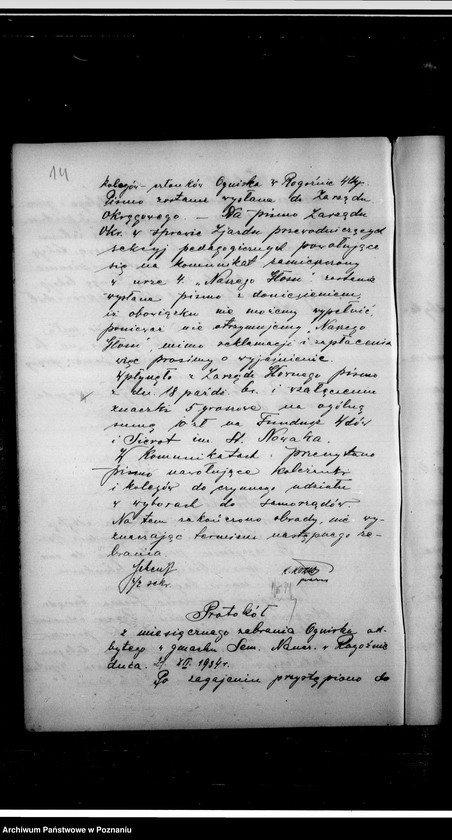 14
kolegów-członków Ogniska w Rogoźnie Wlkp.
Pismo zostanie wysłane do Zarządu
Okręgowego. — Na pismo Zarządu
Okr. w sprawie Zjazdu przewodniczących
sekcyj pedagogicznych powołujące
się na komunikat zamieszczony
w nrze 4. „Naszego Głosu" zostanie
wysłane pismo z doniesieniem,
iż obowiązku nie możemy wypełnić,
ponieważ nie otrzymujemy „Naszego
Głosu" mimo reklamacji i zapłacenia
więc prosimy o wyjaśnienie.
Wpłynęło z Zarządu Głównego pismo
z dn. 18 paźdz. br. i załączeniem
znaczki 5 groszowe na ogólną
sumę 10 zł na Fundusz Wdów
i Sierot im. St. Nowaka.
W Komunikatach przeczytano
pismo nawołujące koleżanki
i kolegów do czynnego udziału
w wyborach do samorządów.
Na tem zakończono obrady, nie wy-
znaczając terminu następnego ze-
brania.
sekr.
prezes
Protokół
z miesięcznego zebrania Ogniska od-
bytego w gmachu Sem. Naucz. w Rogoźnie
dnia XII. 1934 r.
Po zagajeniu przystąpiono do
Archiwum Państwowe w Poznaniu